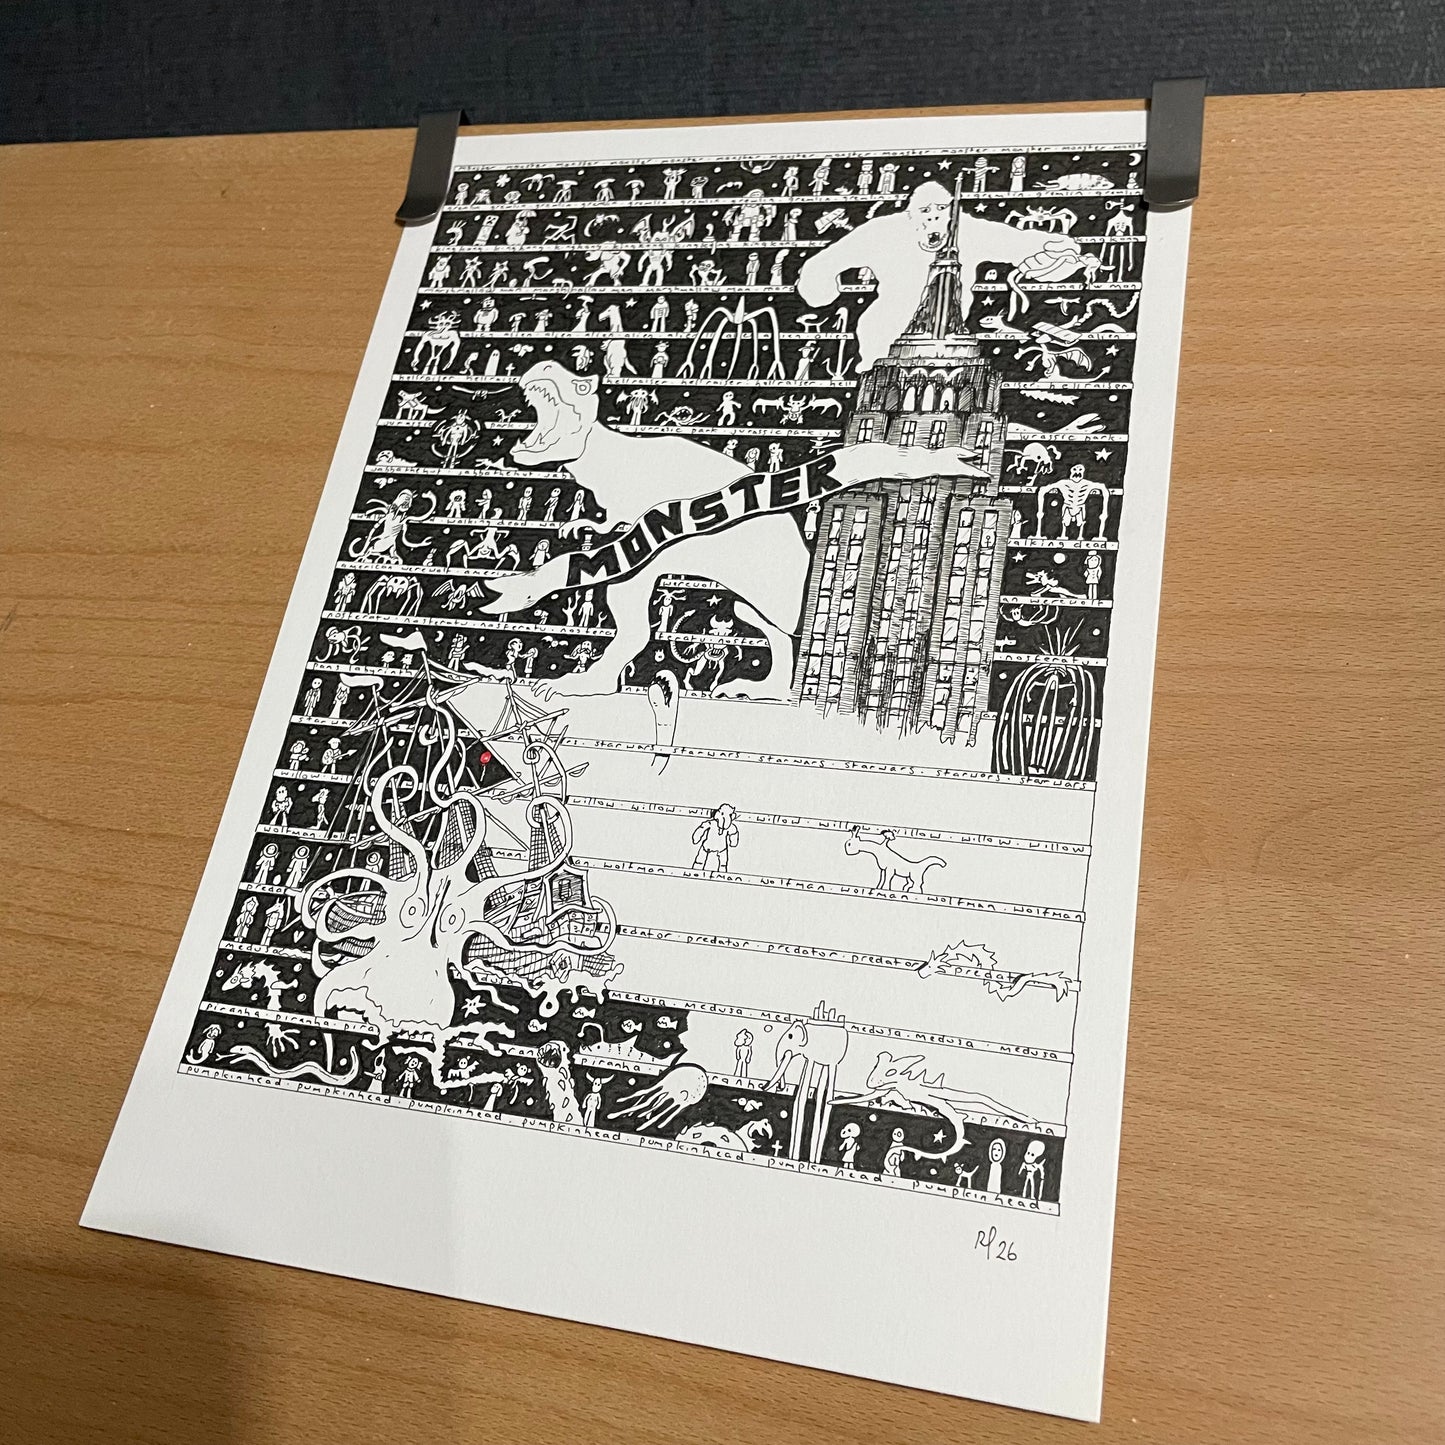 monster · monster · monster · monster · monster · monster · monster · monster · monster · monster
gremlin · gremlin · gremlin · gremlin · gremlin · gremlin · gremlin · gremlin · gremlin
kingkong · kingkong · kingkong · kingkong · kingkong · ki kingkong
marshmallow man · marshmallow man · marshmallow man · mars man · marshmallow man
alien · alien · alien · alien · alien · alien · alien
hellraiser · hellraiser hellraiser · hellraiser · hellraiser · hell aiser · hellraiser
jurassic park · ju jurassic park · jurassic park · ju jurassic park ·
jabba the hut · jabba the hut · jabb
MONSTER
walking dead · wa alking dead ·
american werewolf · ameri werewolf an werewolf
nosferatu · nosferatu · nosferatu · nosfera feratu · nosfera nosferatu ·
pans labyrinth
starwars · starwars · starwars · starwars · starwars · starwars · starwars
willow · wil willow · willow · wil willow · willow · willow · willow · willow
wolfman · man · an · wolfman · wolfman · wolfman · wolfman · wolfman
preda edator · predator · predator · predator predat
medusa dusa medusa · medusa · medu medusa · medusa · medusa
piranha · piranha · pira piranha · piranha · piranha
pumpkinhead · pumpkinhead · pumpkinhead · pumpkinhead · pumpkinhead · pumpkinhead · pumpkinhead ·
26